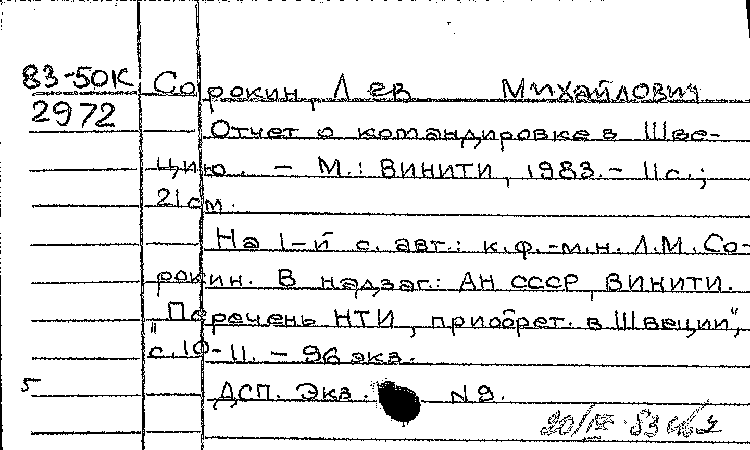 83-50К Сорокин, Лев Михайлович
2972
Отчет о командировке в Шве-
цию. – М.: ВИНИТИ, 1983. – 11 с.;
21 см.
На 1-й с. авт.: к.ф.-м.н. Л.М. Со-
рокин. В надзаг.: АН СССР, ВИНИТИ.
"Перечень НТИ, приобрет. в Швеции",
с. 10-11. – 96 экз.
5 ДСП. Экз. N 9.
20/IV-83